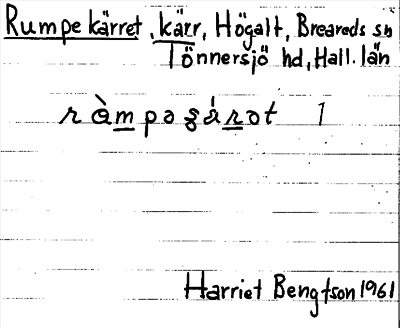 Rumpekärret, kärr, Högalt, Breareds sn
Tönnersjö hd, Hall. län
1
Harriet Bengtson 1961